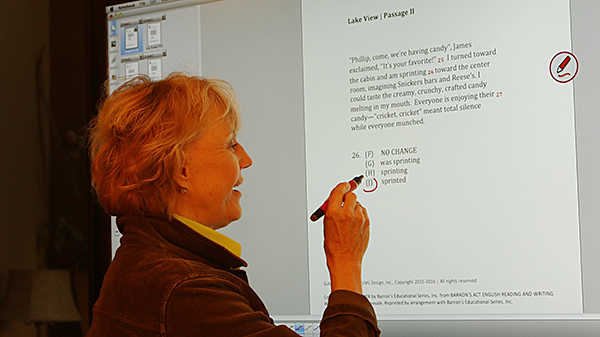 Notebook
Lake View | Passage II
"Phillip, come, we're having candy", James
exclaimed, "It's your favorite!" 25 I turned toward
the cabin and am sprinting 26 toward the center
room, imagining Snickers bars and Reese's. I
could taste the creamy, crunchy, crafted candy
melting in my mouth. Everyone is enjoying their 27
candy—"cricket, cricket" meant total silence
while everyone munched.
26. (F) NO CHANGE
(G) was sprinting
(H) sprinting
(J) sprinted
Design, Inc., Copyright 2015-2016 | All rights reserved
by Barron's Educational Series, Inc. from BARRON'S ACT ENGLISH READING AND WRITING
Reprinted by arrangement with Barron's Educational Series, Inc.